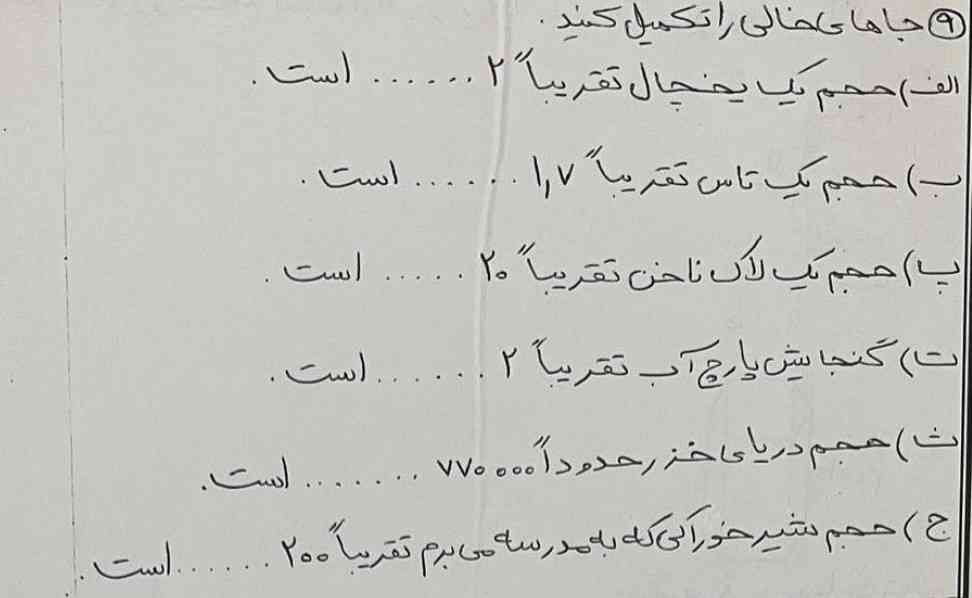 ۹ جاهای خالی را تکمیل کنید.
الف) حجم یک یخچال تقریباً ۲ ...... است.
ب) حجم یک تاس تقریباً ۱,۷ ...... است.
پ) حجم یک لاک ناخن تقریباً ۲۰ ..... است.
ت) گنجایش پارچ آب تقریباً ۲ ...... است.
ث) حجم دریای خزر حدوداً ۷۷۰۰۰۰ ....... است.
ج) حجم شیر خوراکی که به مدرسه می برم تقریباً ۲۰۰ ...... است.